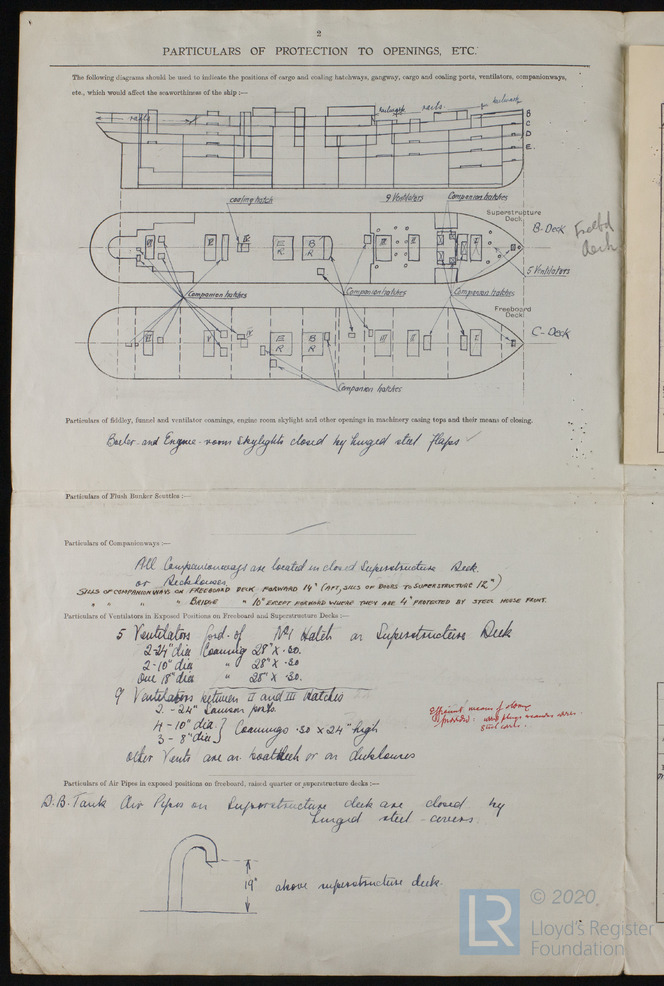 2
PARTICULARS OF PROTECTION TO OPENINGS, ETC.
The following diagrams should be used to indicate the positions of cargo and coaling hatchways, gangway, cargo and coaling ports, ventilators, companionways,
etc., which would affect the seaworthiness of the ship :—
rails
bulwark rails bulwark
B
C
D
E
coaling hatch 9 Ventilators Companion hatches
Superstructure Deck
B-Deck Freebd deck
VI V IV E R B R III II I
5 Ventilators
Companion hatches Companion hatches Companion hatches
Freeboard Deck
C-Deck
VI V IV E R B R III II I
Companion hatches
Particulars of fiddley, funnel and ventilator coamings, engine room skylight and other openings in machinery casing tops and their means of closing.
Boiler and Engine-room Skylights closed by hinged steel flaps ✓
Particulars of Flush Bunker Scuttles :—
Particulars of Companionways :—
All Companionways are located in closed Superstructure Deck.
or Deckhouses.
SILLS OF COMPANIONWAYS ON FREEBOARD DECK FORWARD 14" (AFT, SILLS OF DOORS TO SUPERSTRUCTURE 12")
" " " " BRIDGE " 16" EXCEPT FORWARD WHERE THEY ARE 4" PROTECTED BY STEEL HOUSE FRONT.
Particulars of Ventilators in Exposed Positions on Freeboard and Superstructure Decks :—
5 Ventilators ford. of No 1 Hatch on Superstructure Deck
2-24" dia Coaming 28" x .30.
2-10" dia " 28" x .30
One 18" dia " 28" x .30.
9 Ventilators between II and III Hatches
2 - 24" Samson posts.
4 - 10" dia. } Coamings .30 x 24" high
3 - 8" dia }
Efficient means of closing
provided: wood plugs
other Vents are on boatdeck or on deckhouses
Particulars of Air Pipes in exposed positions on freeboard, raised quarter or superstructure decks :—
D.B. Tank Air Pipes on Superstructure deck are closed by
hinged steel covers.
19" above superstructure deck.
LR © 2020,
Lloyd's Register
Foundation